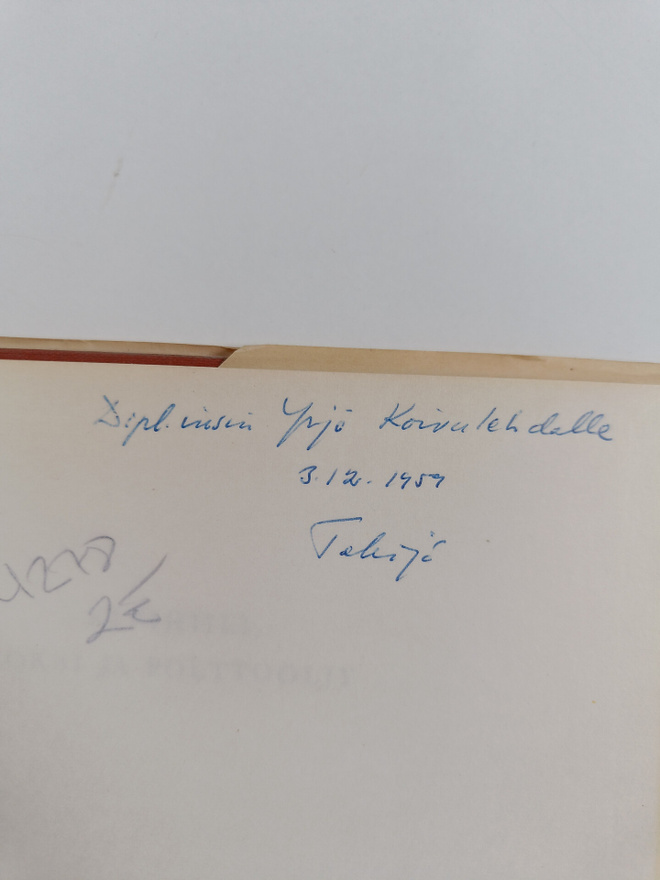 Dipl.insin Yrjö Koivulehdolle
3.12.1959
Tekijä
4278
2€